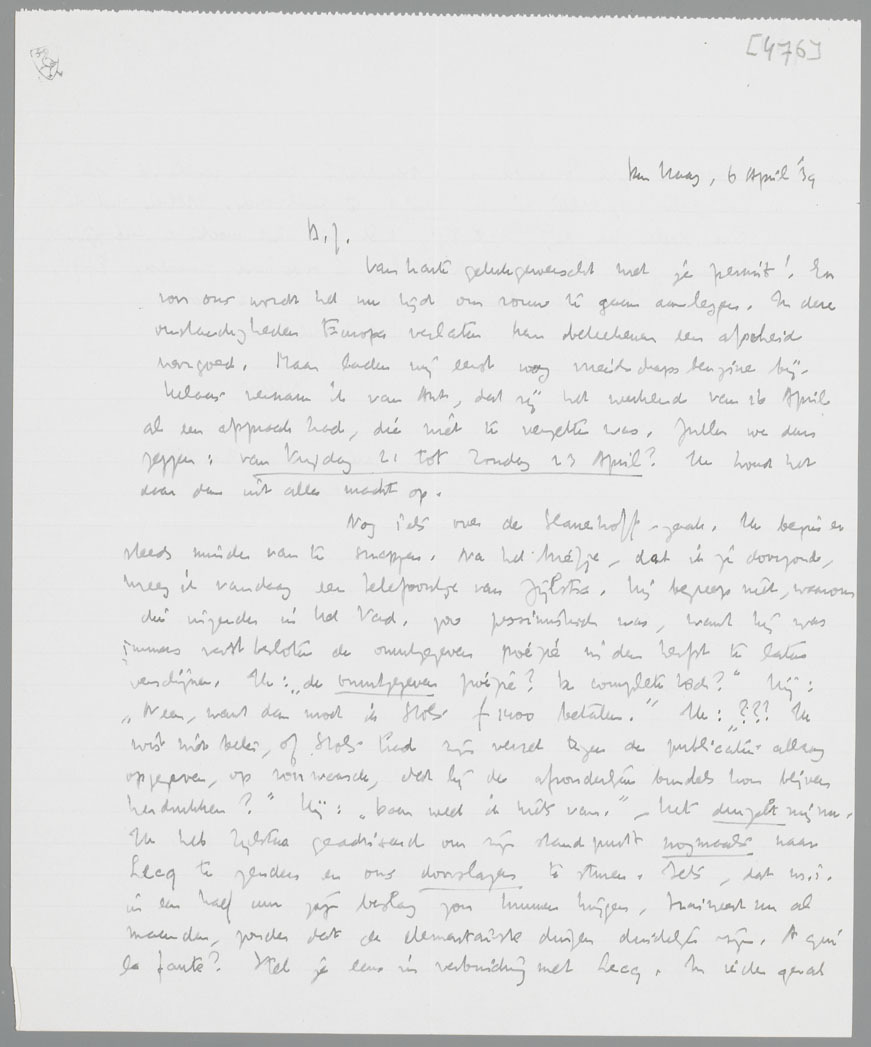 [476]
Den Haag, 6 April '39
B. J.
Van harte gelukgewenscht met je permit! En
voor ons wordt het nu tijd om rouw te gaan aanleggen. In deze
omstandigheden Europa verlaten kan beteekenen een afscheid
voorgoed. Maar laden wij eerst nog vriendschapsbenzine bij.
Helaas vernam ik van Ant, dat zij het weekend van 16 April
al een afspraak had, die niet te verzetten was. Zullen we dus
zeggen: van Vrijdag 21 tot Zondag 23 April? Ik houd het
daar dan uit alle macht op.
Nog iets over de Slauerhoff-zaak. Ik begin er
steeds minder van te snappen. Na het briefje, dat ik je doorzond,
kreeg ik vandaag een telefoontje van Zijlstra. Hij begreep niet, waarom
die uitgever in het Vad. zoo pessimistisch was, want hij was
immers vast besloten de onuitgegeven poëzie in den herfst te laten
verschijnen. Ik: „de onuitgegeven poëzie? De complete toch?" Hij:
„Neen, want dan moet ik Stols f 1400 betalen." Ik: „??? Ik
wist niet beter, of Stols had zijn verzet tegen de publicatie allang
opgegeven, op voorwaarde, dat hij de afzonderlijke bundels kon blijven
herdrukken?" Hij: „daar weet ik niets van." – Het duizelt mij nu.
Ik heb Zijlstra geadviseerd om zijn standpunt nogmaals naar
Lecq te zenden en ons doorslagen te sturen. Iets, dat m.i.
in een half uur zijn beslag zou kunnen krijgen, traineert nu al
maanden, zonder dat de elementairste dingen duidelijk zijn. A qui
la faute? Stel je eens in verbinding met Lecq. In ieder geval